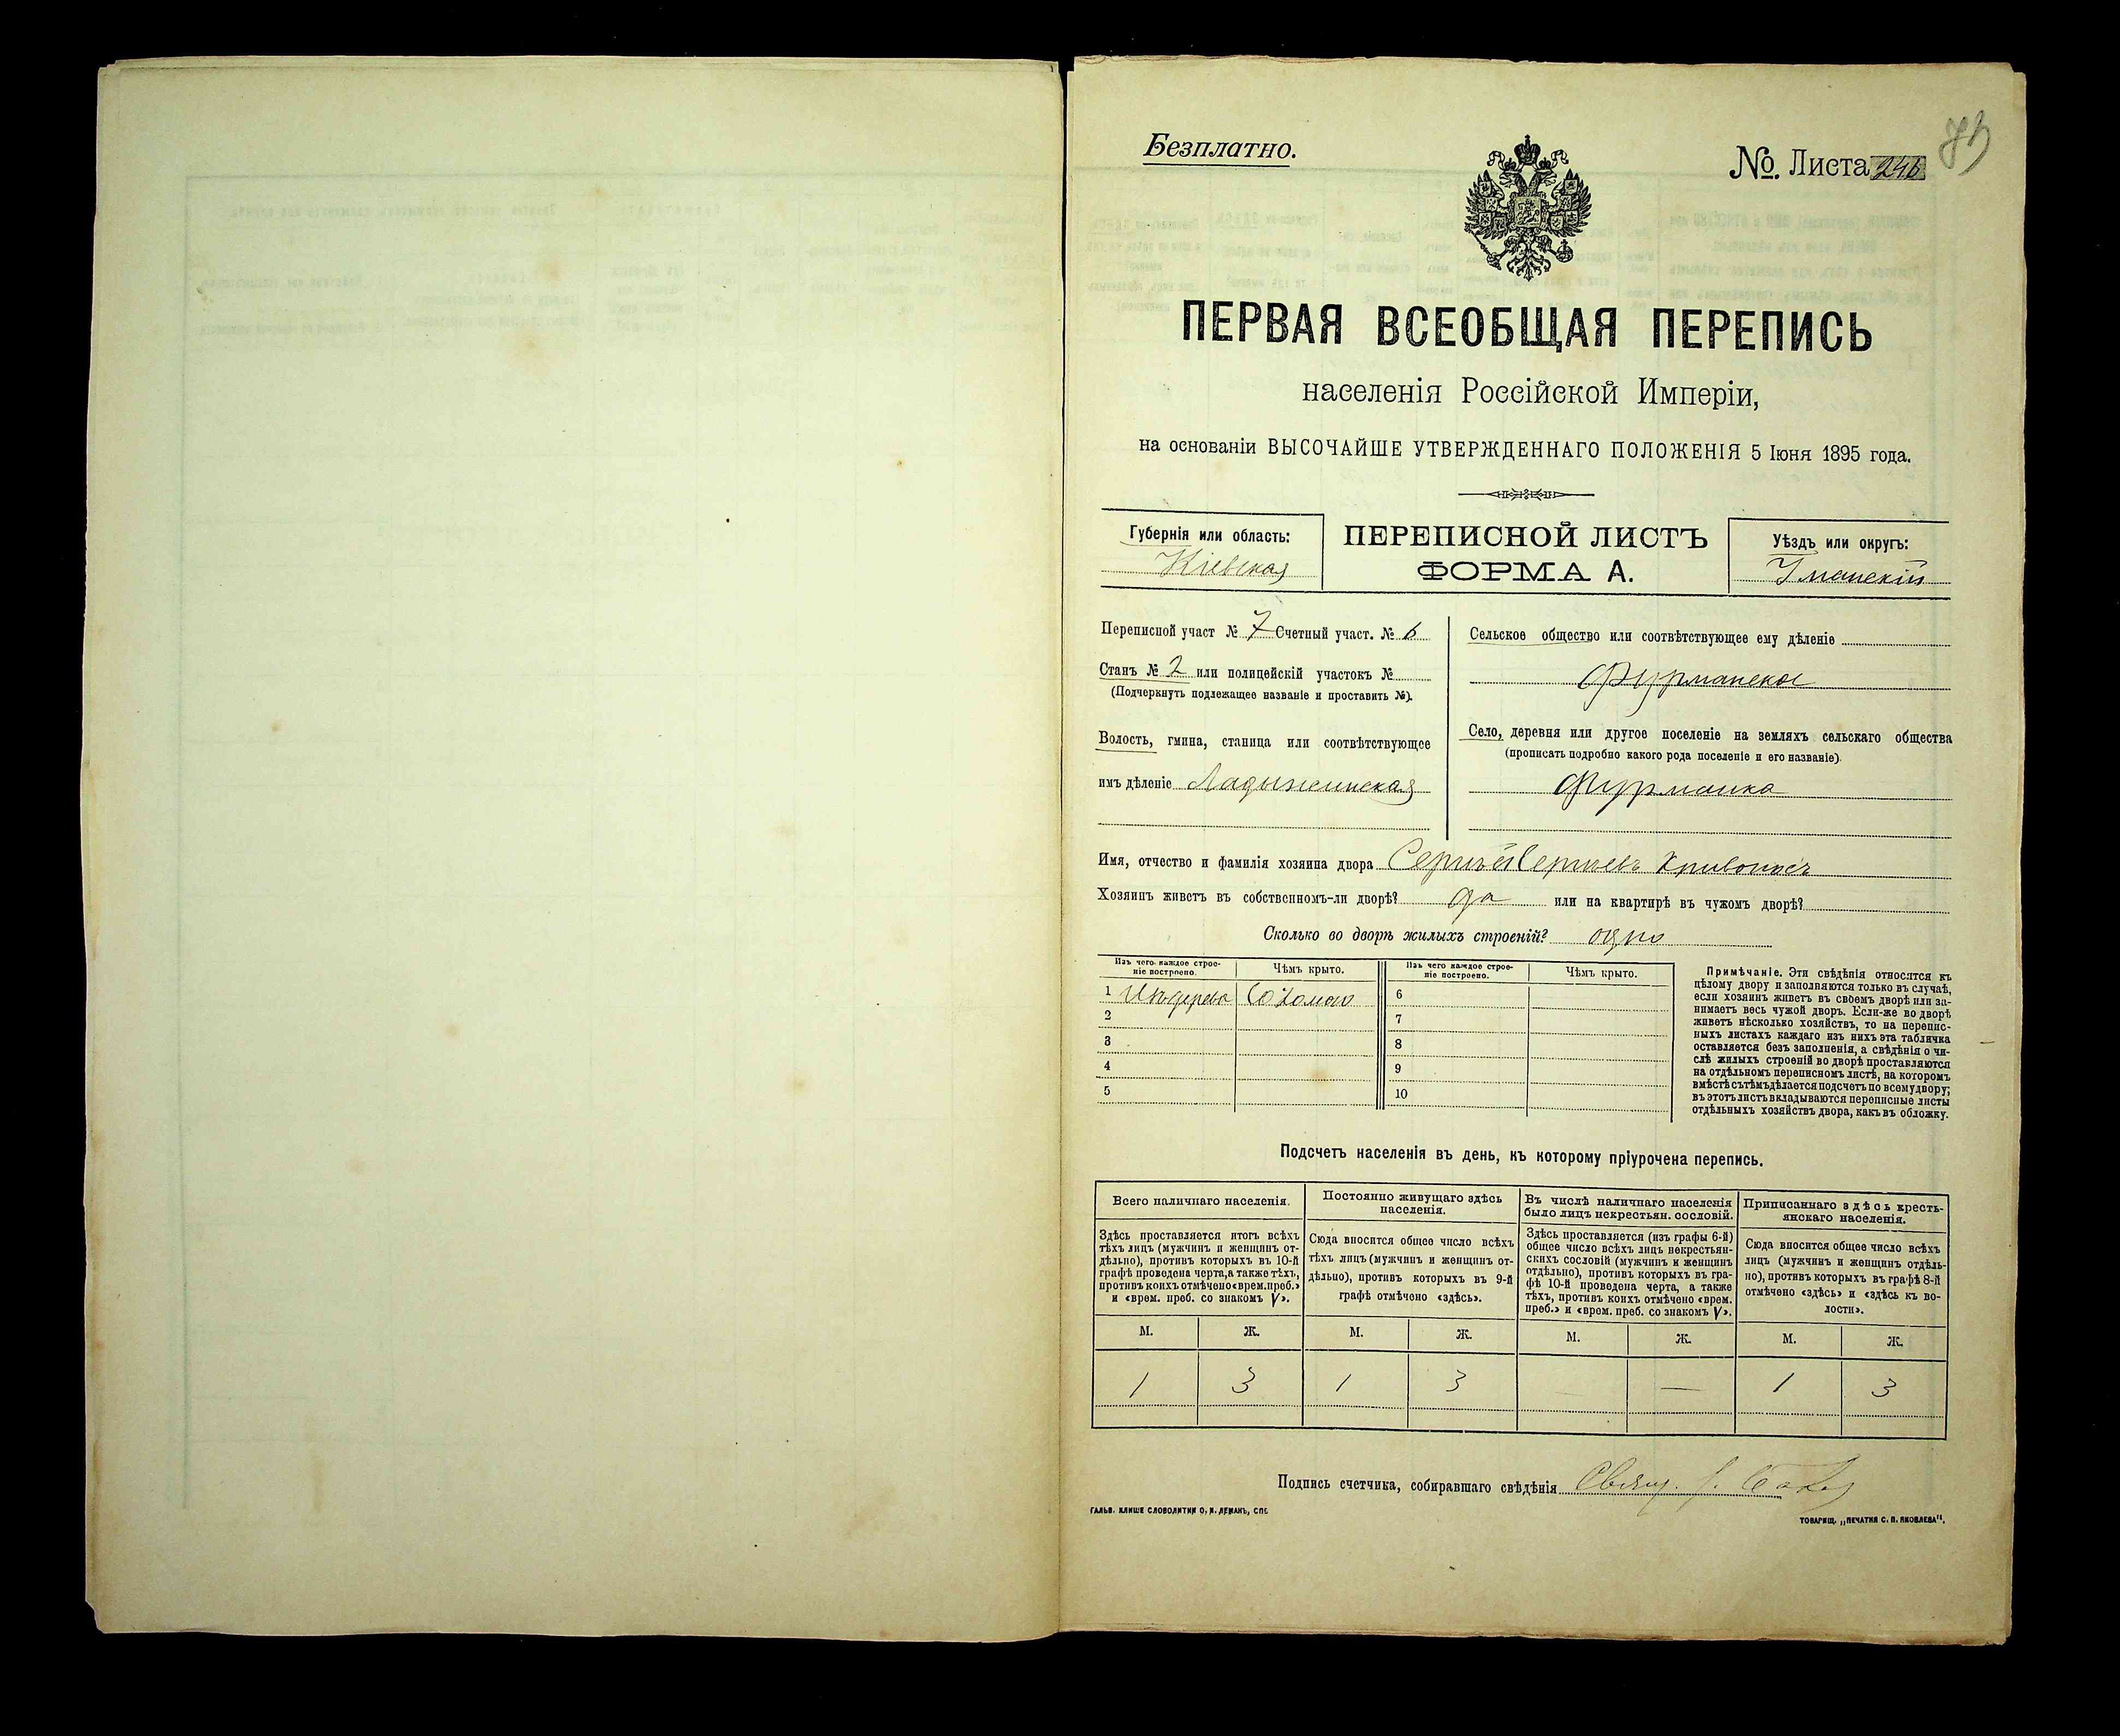 Безплатно.
№. Листа 246
ПЕРВАЯ ВСЕОБЩАЯ ПЕРЕПИСЬ
населенія Россійской Имперіи,
на основаніи ВЫСОЧАЙШЕ УТВЕРЖДЕННАГО ПОЛОЖЕНІЯ 5 Іюня 1895 года.
Губернія или область:
Кіевская
ПЕРЕПИСНОЙ ЛИСТЪ
ФОРМА А.
Уѣздъ или округъ:
Уманскій
Переписной участ № 7 Счетный участ. № 6
Станъ № 2 или полицейскій участокъ №
(Подчеркнуть подлежащее названіе и проставить №).
Волость, гмина, станица или соотвѣтствующее
имъ дѣленіе Ладыжинская
Сельское общество или соотвѣтствующее ему дѣленіе
Фурманское
Село, деревня или другое поселеніе на земляхъ сельскаго общества
(прописать подробно какого рода поселеніе и его названіе).
Фурманка
Имя, отчество и фамилія хозяина двора Сергѣй Сергѣевъ Кривоносъ
Хозяинъ живетъ въ собственномъ-ли дворѣ? да или на квартирѣ въ чужомъ дворѣ?
Сколько во дворѣ жилыхъ строеній? одно
Изъ чего каждое строе-
ніе построено.
Чѣмъ крыто.
Изъ чего каждое строе-
ніе построено.
Чѣмъ крыто.
1 Изъ дерева Соломою 6
2 7
3 8
4 9
5 10
Примѣчаніе. Эти свѣдѣнія относятся къ
цѣлому двору и заполняются только въ случаѣ,
если хозяинъ живетъ въ своемъ дворѣ или за-
нимаетъ весь чужой дворъ. Если-же во дворѣ
живетъ нѣсколько хозяйствъ, то на перепис-
ныхъ листахъ каждаго изъ нихъ эта табличка
оставляется безъ заполненія, а свѣдѣнія о чи-
слѣ жилыхъ строеній во дворѣ проставляются
на отдѣльномъ переписномъ листѣ, на которомъ
вмѣстѣ съ тѣмъ дѣлается подсчетъ по всему двору;
въ этотъ листъ вкладываются переписные листы
отдѣльныхъ хозяйствъ двора, какъ въ обложку.
Подсчетъ населенія въ день, къ которому пріурочена перепись.
Всего наличнаго населенія.
Здѣсь проставляется итогъ всѣхъ
тѣхъ лицъ (мужчинъ и женщинъ от-
дѣльно), противъ которыхъ въ 10-й
графѣ проведена черта, а также тѣхъ,
противъ коихъ отмѣчено «врем. преб.»
и «врем. преб. со знакомъ V».
Постоянно живущаго здѣсь
населенія.
Сюда вносится общее число всѣхъ
тѣхъ лицъ (мужчинъ и женщинъ от-
дѣльно), противъ которыхъ въ 9-й
графѣ отмѣчено «здѣсь».
Въ числѣ наличнаго населенія
было лицъ некрестьян. сословій.
Здѣсь проставляется (изъ графы 6-й)
общее число всѣхъ лицъ некрестьян-
скихъ сословій (мужчинъ и женщинъ
отдѣльно), противъ которыхъ въ гра-
фѣ 10-й проведена черта, а также
тѣхъ, противъ коихъ отмѣчено «врем.
преб.» и «врем. преб. со знакомъ V».
Приписаннаго здѣсь кресть-
янскаго населенія.
Сюда вносится общее число всѣхъ
лицъ (мужчинъ и женщинъ отдѣль-
но), противъ которыхъ въ графѣ 8-й
отмѣчено «здѣсь» и «здѣсь къ во-
лости».
М. Ж. М. Ж. М. Ж. М. Ж.
1 3 1 3 — — 1 3
Подпись счетчика, собиравшаго свѣдѣнія Свящ.
ГАЛЬВ. КЛИШЕ СЛОВОЛИТНИ О. И. ЛЕМАНЪ, СПБ.
ТОВАРИЩ. „ПЕЧАТНЯ С. П. ЯКОВЛЕВА".